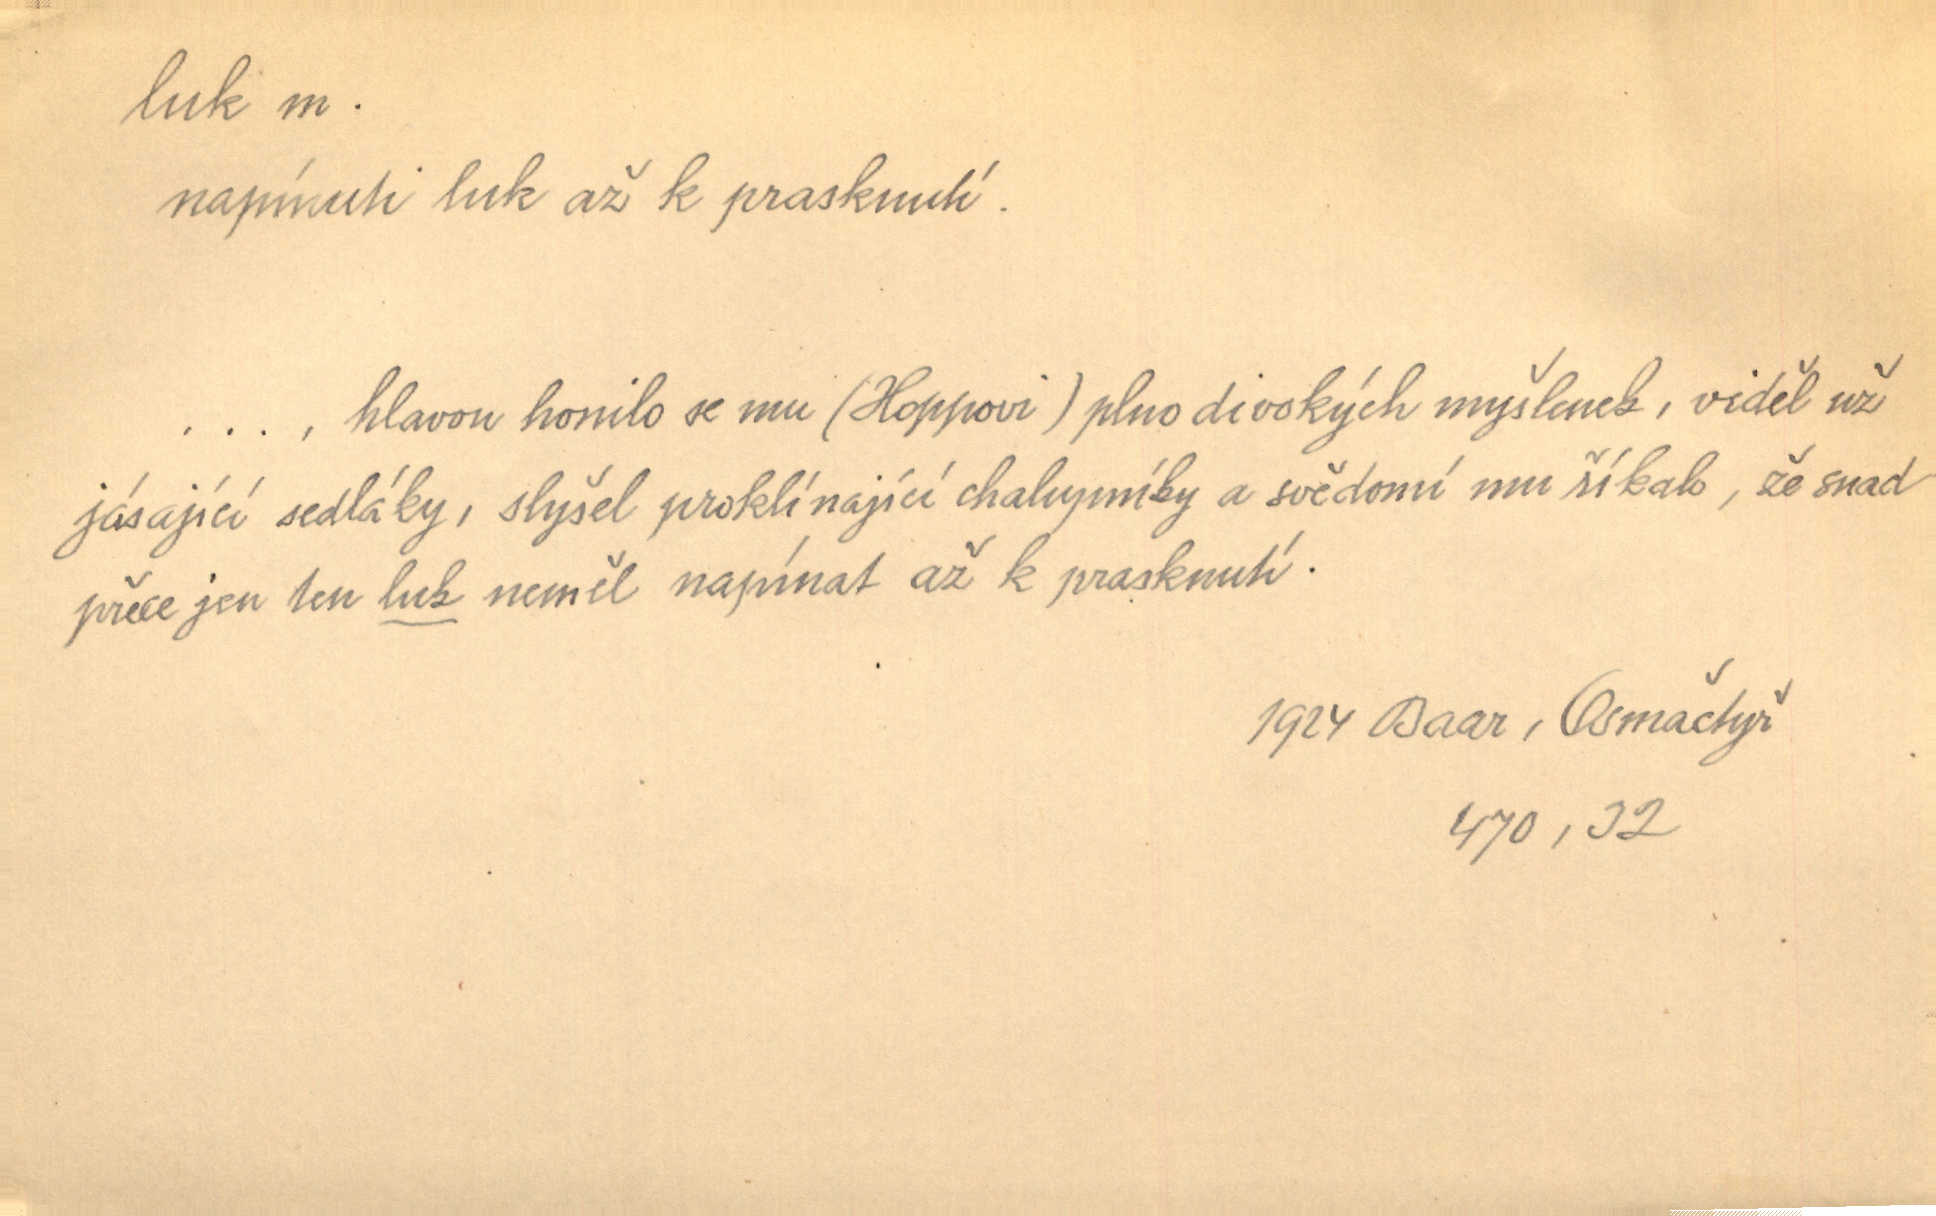 luk m.
napínati luk až k prasknutí.
. . . , hlavou honilo se mu (Hoppovi) plno divokých myšlenek, viděl už
jásající sedláky, slyšel proklínající chalupníky a svědomí mu říkalo, že snad
přece jen ten luk neměl napínat až k prasknutí.
1924 Baar, Osmačtyř
470, 32